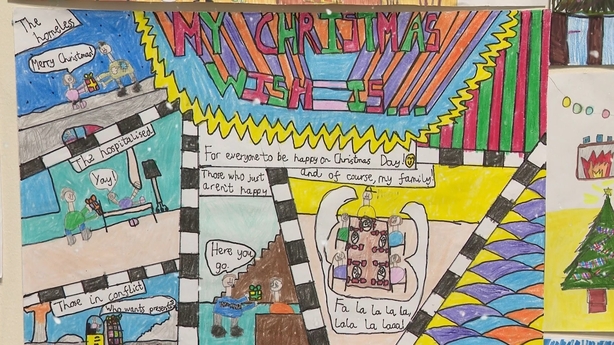 MY CHRISTMAS
WISH IS...
The homeless
Merry Christmas!
The hospitalised
Yay!
Those in conflict
Who wants presents?
For everyone to be happy on Christmas Day!
Those who just
aren't happy
Here you
go.
and of course, my family!
Fa la la la la,
lala la laaa!